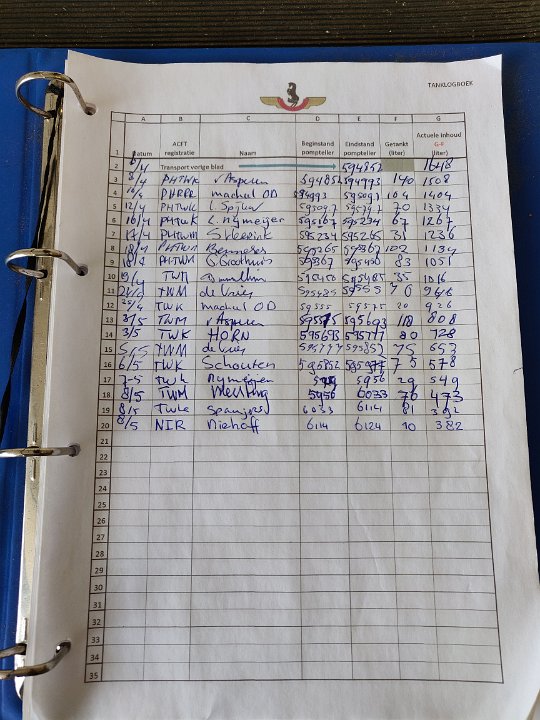 TANKLOGBOEK
A B C D E F G
1 Datum ACFT registratie Naam Beginstand pompteller Eindstand pompteller Getankt (liter) Actuele inhoud G-F (liter)
2 Transport vorige blad 594852 1648
3 8/4 PHTWK v Asperen 594852 594993 140 1508
4 PHRPR machul OD 594993 595097 104 1404
5 12/4 PHTWK 595097 595167 70 1334
6 16/4 PHTWK L. Nymeijer 595167 595234 67 1267
7 17/4 PHTWM 595234 595265 31 1236
8 18/4 PHTWM 595265 595367 102 1134
9 18/4 PHTWM Groothuis 595367 595450 83 1051
10 19/4 TWM 595450 595485 35 1016
11 TWM de Vries 595485 595555 70 946
12 TWK machul OD 59555 59575 20 926
13 3/5 TWM v Asperen 595575 595693 118 808
14 3/5 TWK HORN 595693 595777 80 728
15 5/5 TWM de Vries 75 653
16 6/5 TWK Schouten 595852 75 578
17 7-5 TWK Nymeijer 5956 29 549
18 8/5 TWM 5956 6033 76 473
19 8/5 TWK Spanjers 6033 6114 81 392
20 8/5 NIR Niehoff 6114 6124 10 382
21
22
23
24
25
26
27
28
29
30
31
32
33
34
35